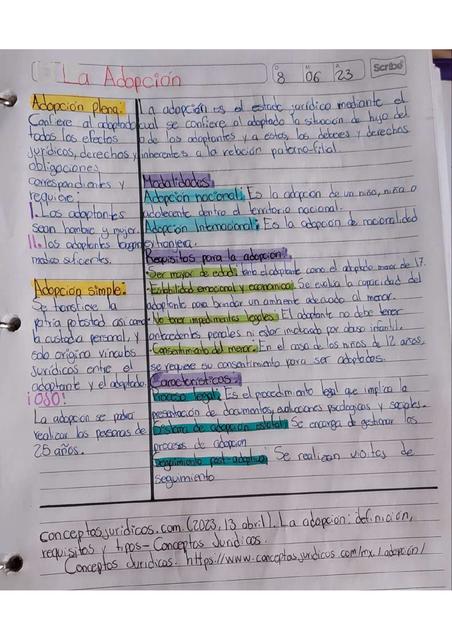 La Adopción
D M A
8 06 23
Scribe
Adopción plena:
Confiere al adoptado
todos los efectos
jurídicos, derechos y
obligaciones
correspondientes y
requiere:
I. Los adoptantes
sean hombre y mujer.
II. los adoptantes tengan
medios suficientes.
Adopción simple:
Se transfiere la
patria potestad, así como
la custodia personal, y
solo origina vínculos
jurídicos entre el
adoptante y el adoptado.
¡OJO!
La adopción se podrá
realizar las personas de
25 años.
La adopción es el estado jurídico mediante el
cual se confiere al adoptado la situación de hijo del
o de los adoptantes y a estos, los deberes y derechos
inherentes a la relación paterno-filial.
Modalidades
Adopción nacional: Es la adopción de un niño, niña o
adolescente dentro el territorio nacional.
Adopción Internacional: Es la adopción de nacionalidad
extranjera.
Requisitos para la adopción:
Ser mayor de edad: tanto el adoptante como el adoptado mayor de 17.
Estabilidad emocional y económica: Se evalúa la capacidad del
adoptante para brindar un ambiente adecuado al menor.
No tener impedimentos legales: El adoptante no debe tener
antecedentes penales ni estar involucrado por abuso infantil.
Consentimiento del menor: En el caso de los niños de 12 años,
se requiere su consentimiento para ser adoptados.
Características:
Proceso legal: Es el procedimiento legal que implica la
presentación de documentos, evaluaciones psicológicas y sociales.
Sistema de adopción estatal: Se encarga de gestionar los
procesos de adopción
Seguimiento post-adoptivo: Se realizan visitas de
seguimiento
conceptosjuridicos.com. (2023, 13 abril). La adopción: definición,
requisitos y tipos - Conceptos Jurídicos.
Conceptos Jurídicos. https://www.conceptosjuridicos.com/mx/adopcion/